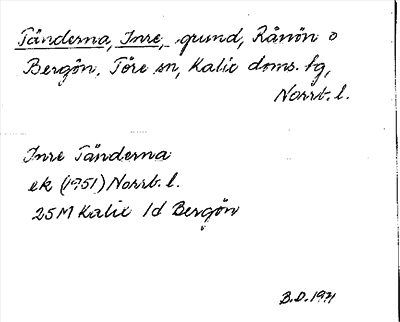 Tänderna, Inre, grund, Rånön o
Bergön, Töre sn, Kalix doms. tg,
Norrb. l.
Inre Tänderna
ek (1951) Norrb. l.
25M Kalix 1d Bergön
B.D. 1971